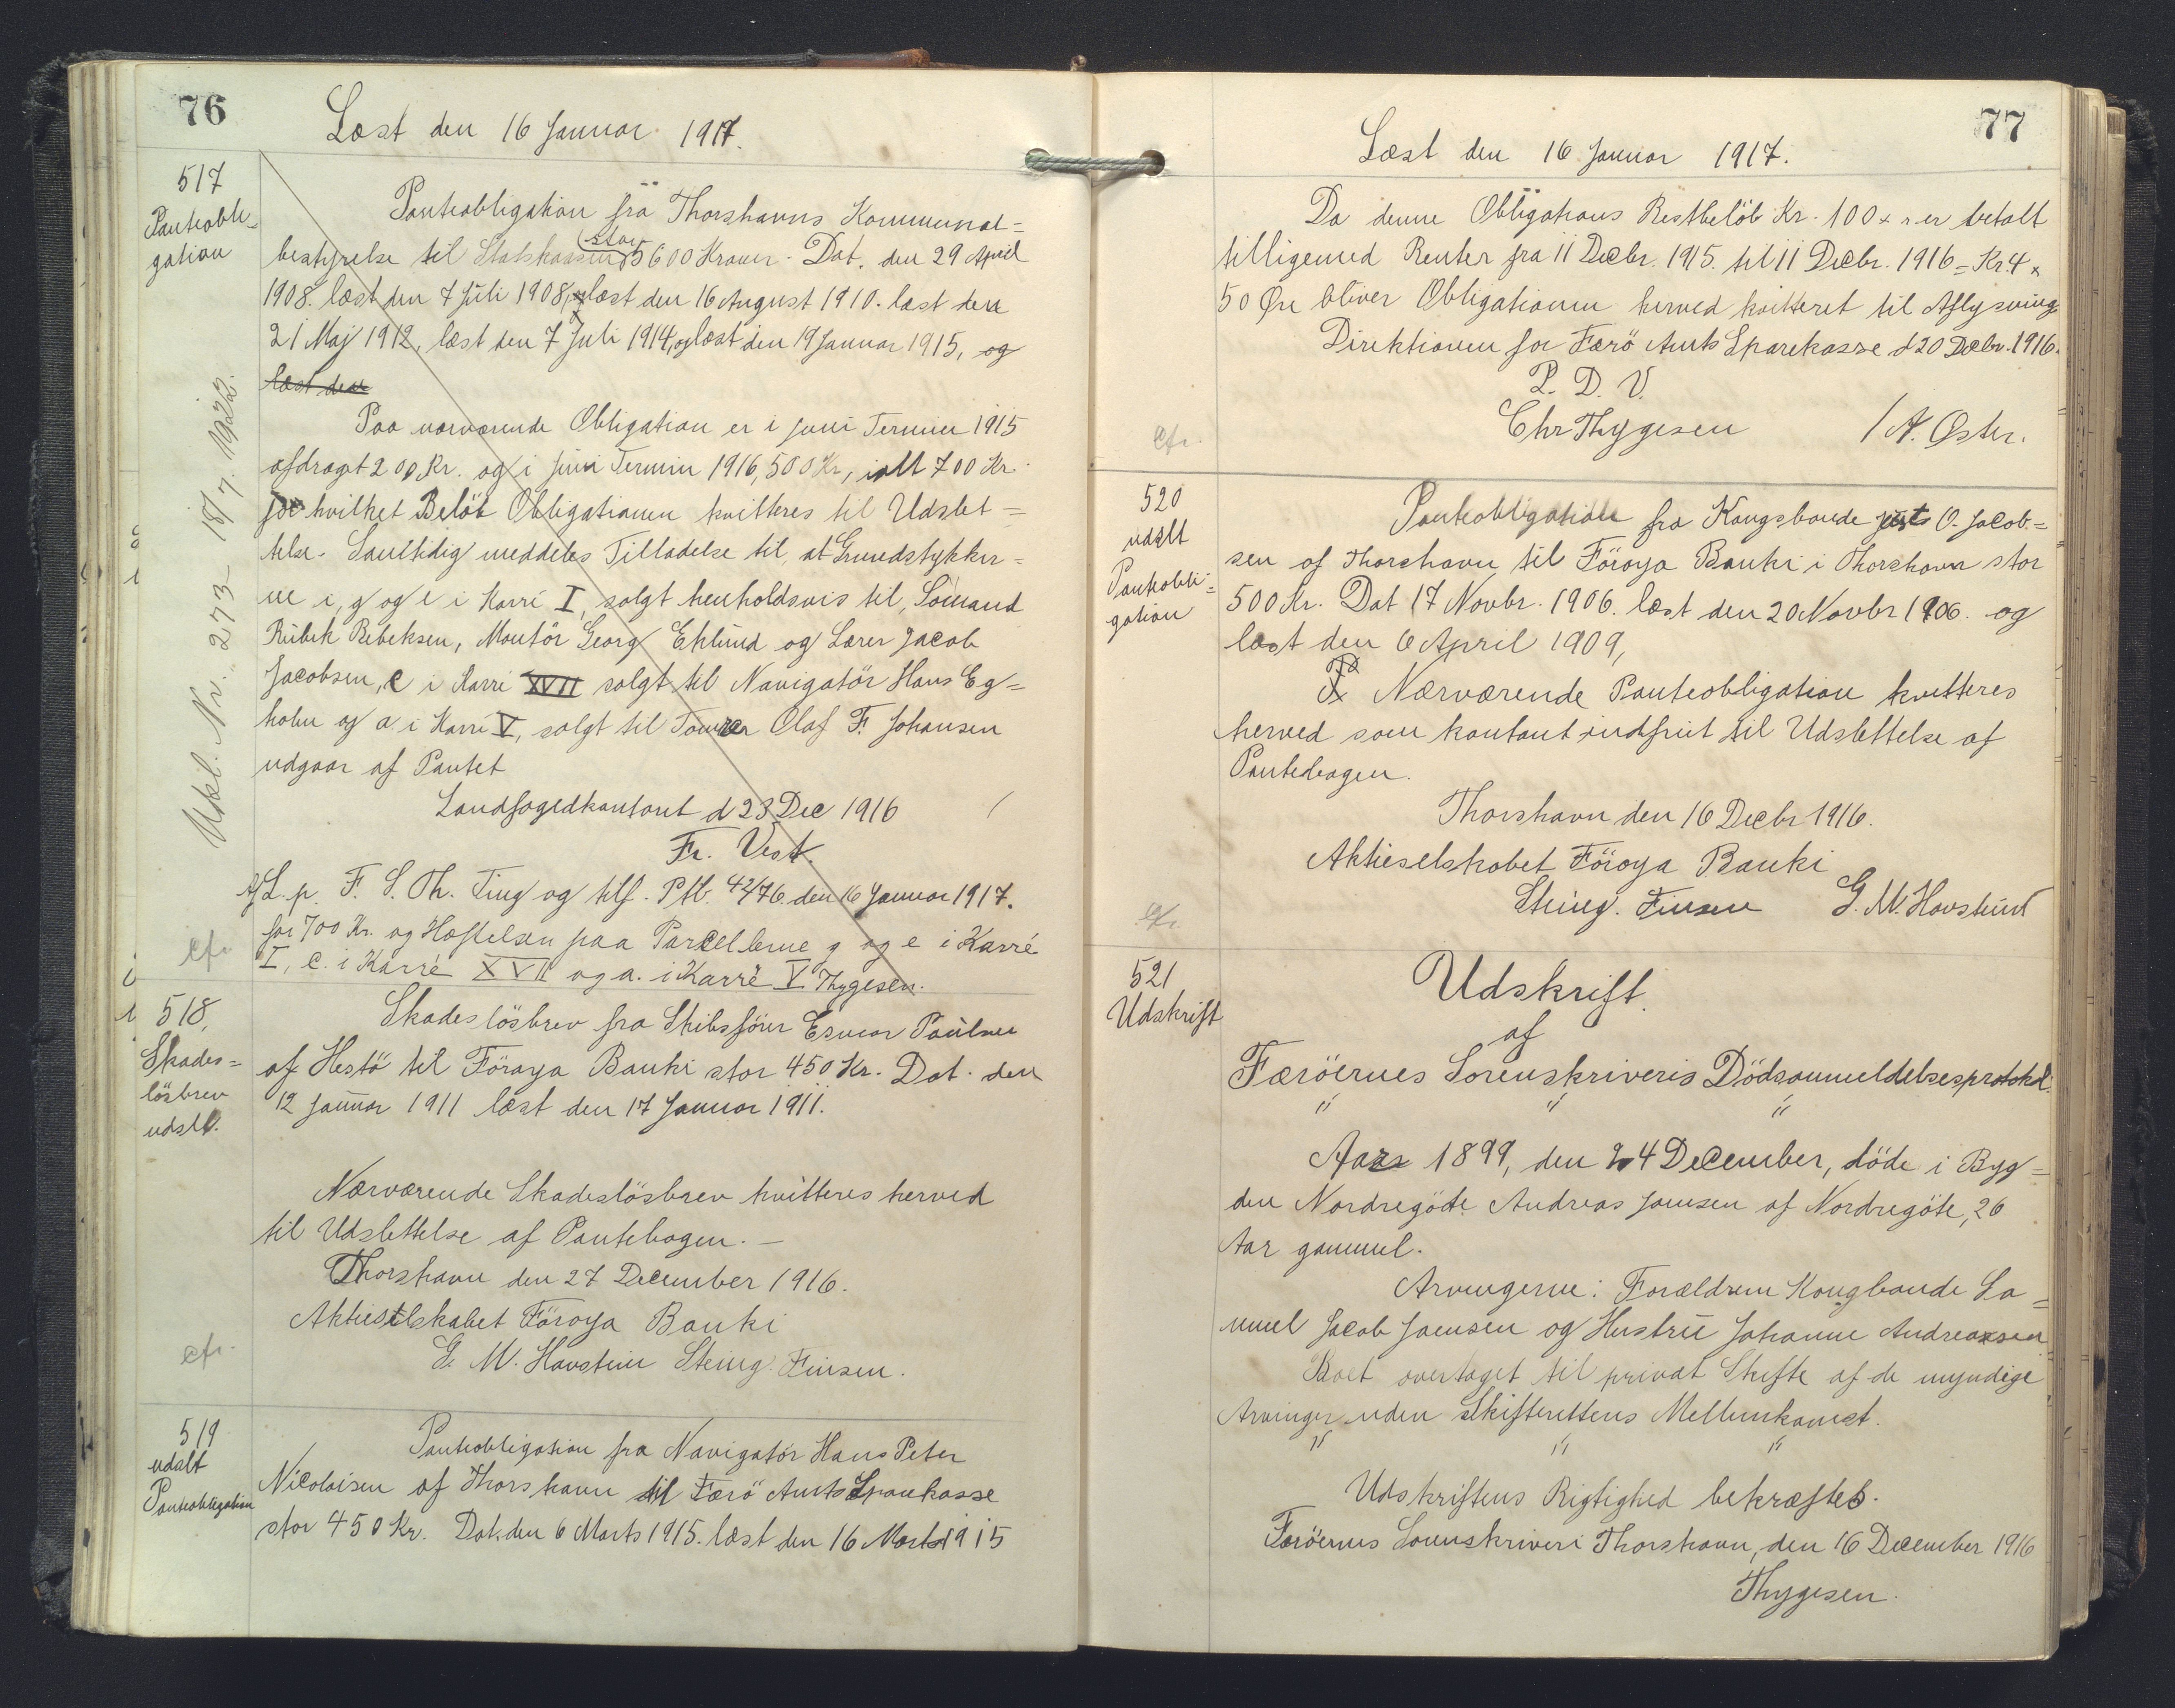 76
Læst den 16 Januar 1917.
517
Panteobli-
gation
Panteobligation fra Thorshavns Kommunal=
bestyrelse til Statskassen stor 5600 Kroner. Dat. den 29 April
1908. læst den 7 Juli 1908, læst den 16 August 1910. læst den
21 Maj 1912, læst den 7 Juli 1914, og læst den 19 Januar 1915, og
læst den
Paa nærværende Obligation er i Juni Termin 1915
afdraget 200 Kr. og i Juni Termin 1916, 500 Kr, ialt 700 Kr.
for hvilket Belöb Obligationen kvitteres til Udslet=
telse. Samtidig meddeles Tilladelse til, at Grundstykker=
ne i, g og e i Karré I, solgt henholdsvis til, Sömand
Rubek Rebeksen, Montör Georg Eklund og Lærer Jacob
Jacobsen, c i Karré XVII solgt til Navigatör Hans Eg=
holm og a i Karré V, solgt til Tömrer Olaf F. Johansen
udgaar af Pantet
Landfogedkontoret d 23 Dec 1916
Fr. Vest.
Afl. p. F. S. Th. Ting og tilf. Ptb. 42/76 den 16 Januar 1917.
for 700 Kr. og Hæftelsen paa Parcellerne g og e i Karré
I, c. i Karré XVII og a. i Karré V Thygesen.
Utkl. Nr. 273 - 18/7. 1922.
cfr.
518,
Skades=
lösbrev
udsl.
Skadeslösbrev fra Skibsförer Esmar Paulsen
af Hestö til Föroya Banki stor 450 Kr. Dat. den
12 Januar 1911 læst den 17 Januar 1911.
Nærværende Skadeslösbrev kvitteres herved
til Udslettelse af Pantebogen.-
Thorshavn den 27 December 1916.
Aktieselskabet Föroya Banki
G. M. Havsteen Steing. Finsen.
cfr.
519
udslt
Panteobligation
Panteobligation fra Navigatör Hans Peter
Nicolaisen af Thorshavn til Færö Amts Sparekasse
stor 450 Kr. Dat. den 6 Marts 1915. læst den 16 Marts 1915
77
Læst den 16 Januar 1917.
Da denne Obligations Restbelöb Kr. 100 er betalt
tilligemed Renter fra 11 Decbr. 1915. til 11 Decbr. 1916 = Kr. 4
50 Öre bliver Obligationen herved kvitteret til Aflysning
Direktionen for Færö Amts Sparekasse d 20 Decbr. 1916.
P. D. V.
Chr Thygesen / A. Öster.
cfr.
520
udslt
Panteobli=
gation
Panteobligation fra Kongsbonde Just O. Jacob=
sen af Thorshavn til Föroya Banki i Thorshavn stor
500 Kr. Dat 17 Novbr. 1906. læst den 20 Novbr 1906. og
læst den 6 April 1909,
Nærværende Panteobligation kvitteres
herved som kontant indfriet til Udslettelse af
Pantebogen.
Thorshavn den 16 Decbr 1916.
Aktieselskabet Föroya Banki
Steing. Finsen G. M. Havsteen
cfr.
521
Udskrift
Udskrift
af
Færöernes Sorenskriveris Dödsanmeldelsesprotokol.
" " "
Aar 1899, den 24 December, döde i Byg=
den Nordregöte Andreas Joensen af Nordregöte, 26
Aar gammel.
Arvingerne: Forældrene Kongbonde Sa=
muel Jacob Joensen og Hustru Johanne Andreassen
Boet overtaget til privat Skifte af de myndige
Arvinger uden Skifterettens Mellemkomst.
" " "
Udskriftens Rigtighed bekræftes.
Færöernes Sorenskriveri Thorshavn, den 16 December 1916
Thygesen.